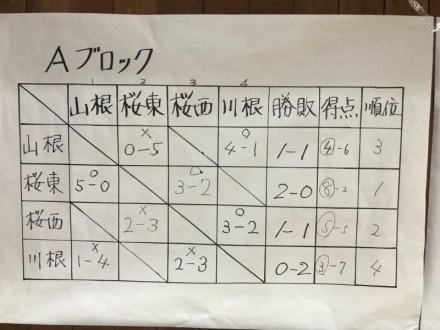 Aブロック
1 2 3 4
山根 桜東 桜西 川根 勝敗 得点 順位
山根 × 0-5 ○ 4-1 1-1 ④-6 3
桜東 ○ 5-0 ○ 3-2 2-0 ⑧-2 1
桜西 × 2-3 ○ 3-2 1-1 ⑤-5 2
川根 × 1-4 × 2-3 0-2 ③-7 4